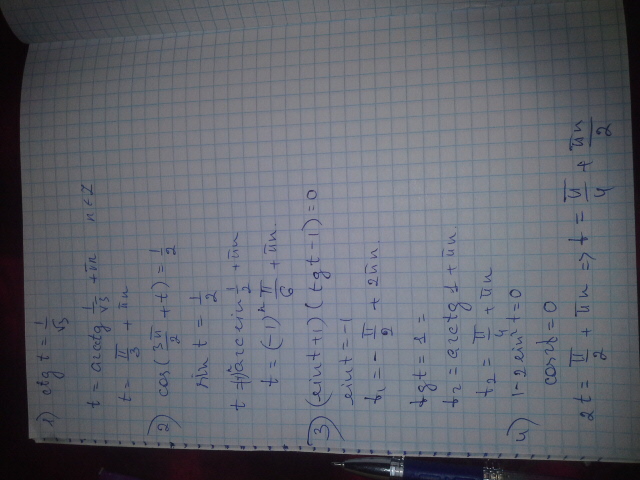 1) ctg t = 1/√3
t = arcctg 1/√3 + πn n ∈ Z
t = π/3 + πn
2) cos(3π/2 + t) = 1/2
sin t = 1/2
t = (-1)ⁿ arcsin 1/2 + πn
t = (-1)ⁿ π/6 + πn
3) (sin t + 1)(tg t - 1) = 0
sin t = -1
t₁ = - π/2 + 2πn
tg t = 1 =
t₂ = arctg 1 + πn.
t₂ = π/4 + πn
4) 1 - 2 sin² t = 0
cos 2t = 0
2t = π/2 + πn => t = π/4 + πn/2